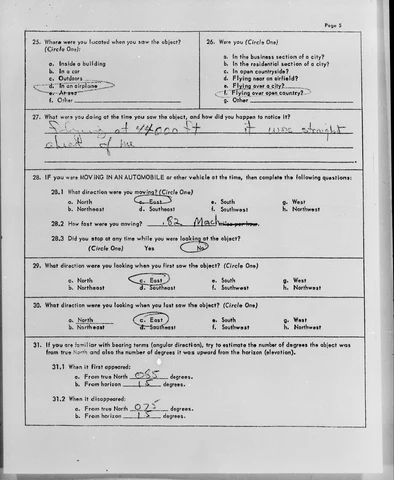 Page 5
25. Where were you located when you saw the object?
(Circle One):
a. Inside a building
b. In a car
c. Outdoors
d. In an airplane
e. At sea
f. Other
26. Were you (Circle One)
a. In the business section of a city?
b. In the residential section of a city?
c. In open countryside?
d. Flying near an airfield?
e. Flying over a city?
f. Flying over open country?
g. Other
27. What were you doing at the time you saw the object, and how did you happen to notice it?
Flying at 44000 ft it was straight
ahead of me
28. IF you were MOVING IN AN AUTOMOBILE or other vehicle at the time, then complete the following questions:
28.1 What direction were you moving? (Circle One)
a. North c. East e. South g. West
b. Northeast d. Southeast f. Southwest h. Northwest
28.2 How fast were you moving? .82 Mach miles per hour.
28.3 Did you stop at any time while you were looking at the object?
(Circle One) Yes No
29. What direction were you looking when you first saw the object? (Circle One)
a. North c. East e. South g. West
b. Northeast d. Southeast f. Southwest h. Northwest
30. What direction were you looking when you last saw the object? (Circle One)
a. North c. East e. South g. West
b. Northeast d. Southeast f. Southwest h. Northwest
31. If you are familiar with bearing terms (angular direction), try to estimate the number of degrees the object was
from true North and also the number of degrees it was upward from the horizon (elevation).
31.1 When it first appeared:
a. From true North 065 degrees.
b. From horizon 15 degrees.
31.2 When it disappeared:
a. From true North 075 degrees.
b. From horizon 15 degrees.